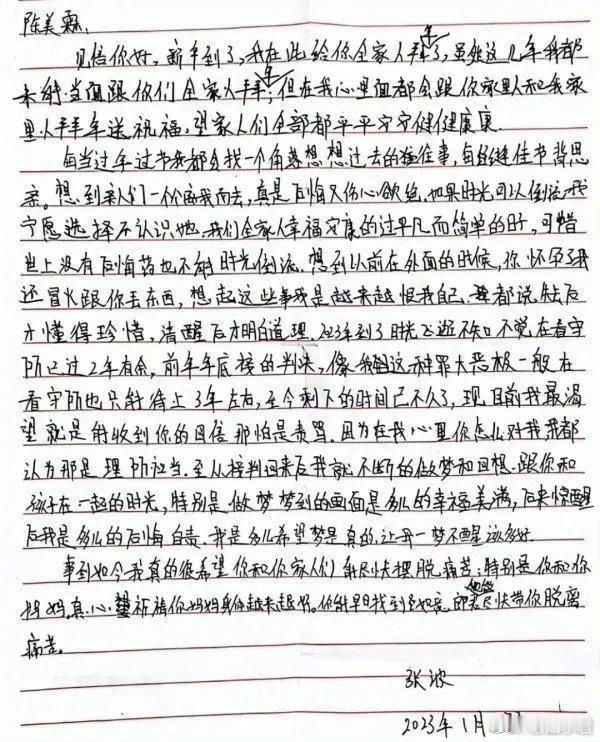 陈美霖:
见信你好,新年到了,我在此给你全家人拜年了,虽然这几年我都
未能当面跟你们全家人拜年,但在我心里面都会跟你家里人和我家
里人拜年送祝福,望家人们全部都平平安安健健康康
每当过年过节我都会找一个角落想想过去的往事,每逢佳节倍思
亲。想到亲人们一个个离我而去,真是后悔又伤心欲绝,如果时光可以倒流我
宁愿选择不认识她,我们全家人幸福安康的过平凡而简单的日子,可惜
世上没有后悔药也不能时光倒流。想到以前在外面的时候,你怀孕了我
还冒火跟你丢东西,想起这些事我是越来越恨我自己,我都说失去后
才懂得珍惜,清醒后才明白道理。2023年到了时光飞逝不知不觉在看守
所已过2年有余,前年年底接的判决,像我们这种罪大恶极一般在
看守所也只能待上3年左右,至今剩下的时间已不久了,现目前我最渴
望就是能收到你的回信那怕是责骂。因为在我心里你怎么对我我都
认为那是理所应当。至从接判回来后我就不断的做梦和回想跟你和
孩子在一起的时光,特别是做梦梦到的画面是多么的幸福美满,后来惊醒
后我是多么的后悔自责。我是多么希望梦是真的,让我一梦不醒该多好
事到如今我真的很希望你和你家人们能尽快摆脱痛苦,特别是你和你
妈妈,真心祈祷你妈妈身体越来越好。你能早日找到如意郎君尽快带你脱离
痛苦。
张波
2023年1月